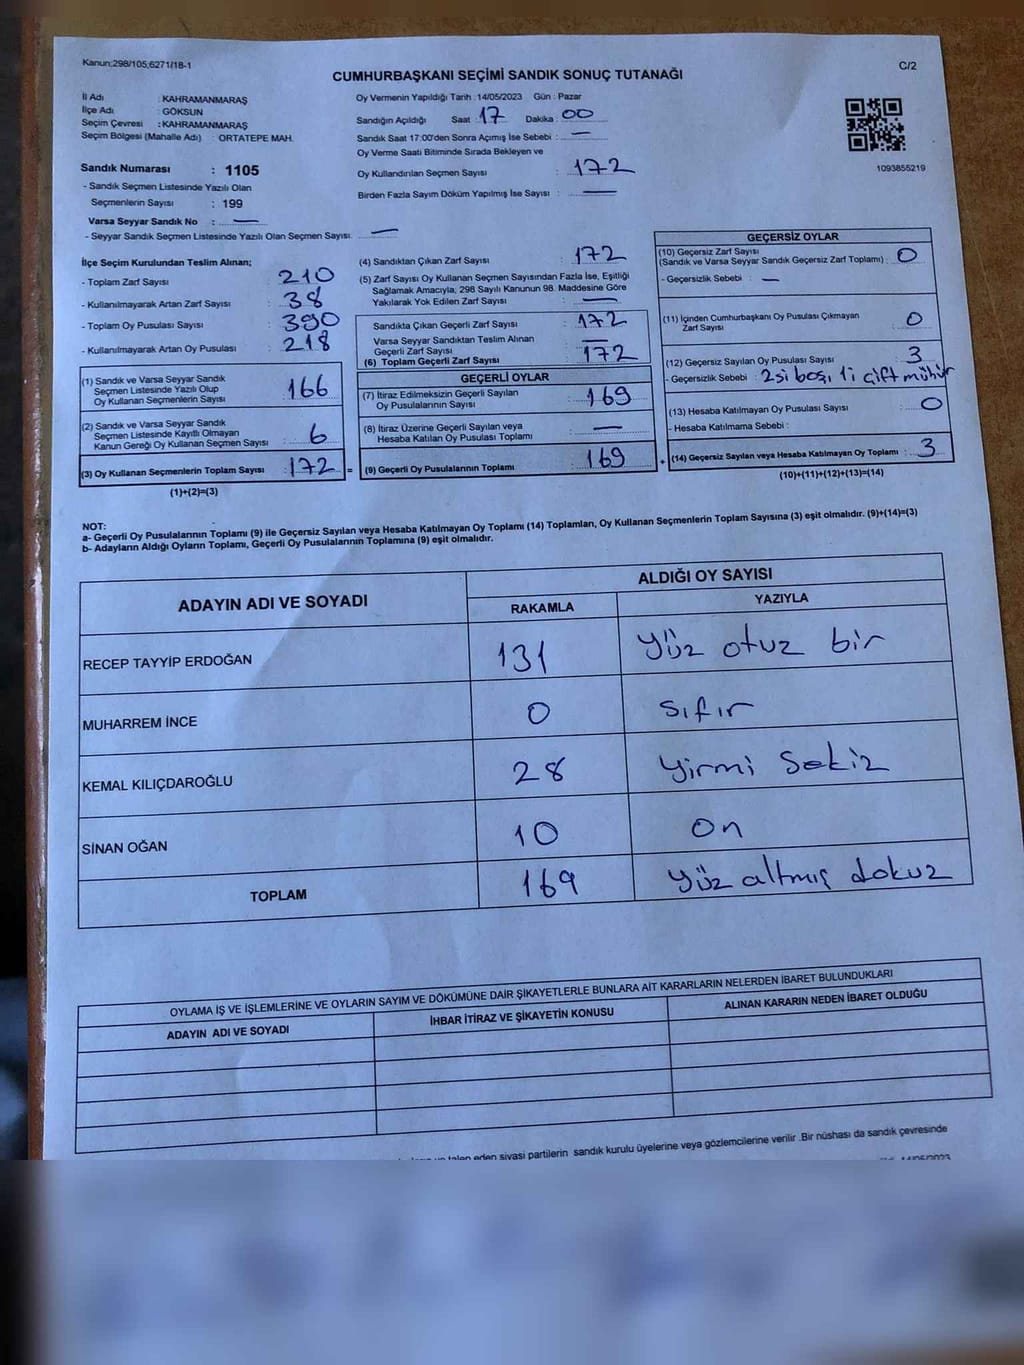 Kanun;298/105,6271/18-1
C/2
CUMHURBAŞKANI SEÇİMİ SANDIK SONUÇ TUTANAĞI
İl Adı : KAHRAMANMARAŞ
İlçe Adı : GÖKSUN
Seçim Çevresi : KAHRAMANMARAŞ
Seçim Bölgesi (Mahalle Adı) : ORTATEPE MAH.
Sandık Numarası : 1105
- Sandık Seçmen Listesinde Yazılı Olan
Seçmenlerin Sayısı : 199
Varsa Seyyar Sandık No : —
- Seyyar Sandık Seçmen Listesinde Yazılı Olan Seçmen Sayısı: —
Oy Vermenin Yapıldığı Tarih : 14/05/2023 Gün : Pazar
Sandığın Açıldığı Saat : 17 Dakika : 00
Sandık Saat 17:00'den Sonra Açımış İse Sebebi : —
Oy Verme Saati Bitiminde Sırada Bekleyen ve
Oy Kullandırılan Seçmen Sayısı : 172
Birden Fazla Sayım Döküm Yapılmış İse Sayısı : —
1093855219
İlçe Seçim Kurulundan Teslim Alınan;
- Toplam Zarf Sayısı : 210
- Kullanılmayarak Artan Zarf Sayısı : 38
- Toplam Oy Pusulası Sayısı : 390
- Kullanılmayarak Artan Oy Pusulası : 218
(1) Sandık ve Varsa Seyyar Sandık
Seçmen Listesinde Yazılı Olup
Oy Kullanan Seçmenlerin Sayısı : 166
(2) Sandık ve Varsa Seyyar Sandık
Seçmen Listesinde Kayıtlı Olmayan
Kanun Gereği Oy Kullanan Seçmen Sayısı : 6
(3) Oy Kullanan Seçmenlerin Toplam Sayısı : 172 =
(1)+(2)=(3)
(4) Sandıktan Çıkan Zarf Sayısı : 172
(5) Zarf Sayısı Oy Kullanan Seçmen Sayısından Fazla İse, Eşitliği
Sağlamak Amacıyla, 298 Sayılı Kanunun 98. Maddesine Göre
Yakılarak Yok Edilen Zarf Sayısı : —
Sandıkta Çıkan Geçerli Zarf Sayısı : 172
Varsa Seyyar Sandıktan Teslim Alınan
Geçerli Zarf Sayısı : —
(6) Toplam Geçerli Zarf Sayısı : 172
GEÇERLİ OYLAR
(7) İtiraz Edilmeksizin Geçerli Sayılan
Oy Pusulalarının Sayısı : 169
(8) İtiraz Üzerine Geçerli Sayılan veya
Hesaba Katılan Oy Pusulası Toplamı : —
(9) Geçerli Oy Pusulalarının Toplamı : 169 +
GEÇERSİZ OYLAR
(10) Geçersiz Zarf Sayısı
(Sandık ve Varsa Seyyar Sandık Geçersiz Zarf Toplamı) : 0
- Geçersizlik Sebebi : —
(11) İçinden Cumhurbaşkanı Oy Pusulası Çıkmayan
Zarf Sayısı : 0
(12) Geçersiz Sayılan Oy Pusulası Sayısı : 3
- Geçersizlik Sebebi : 2si boş, 1i çift mühür
(13) Hesaba Katılmayan Oy Pusulası Sayısı : 0
- Hesaba Katılmama Sebebi :
(14) Geçersiz Sayılan veya Hesaba Katılmayan Oy Toplamı : 3
(10)+(11)+(12)+(13)=(14)
NOT:
a- Geçerli Oy Pusulalarının Toplamı (9) ile Geçersiz Sayılan veya Hesaba Katılmayan Oy Toplamı (14) Toplamları, Oy Kullanan Seçmenlerin Toplam Sayısına (3) eşit olmalıdır. (9)+(14)=(3)
b- Adayların Aldığı Oyların Toplamı, Geçerli Oy Pusulalarının Toplamına (9) eşit olmalıdır.
ADAYIN ADI VE SOYADI
ALDIĞI OY SAYISI
RAKAMLA YAZIYLA
RECEP TAYYİP ERDOĞAN 131 yüz otuz bir
MUHARREM İNCE 0 sıfır
KEMAL KILIÇDAROĞLU 28 yirmi sekiz
SİNAN OĞAN 10 on
TOPLAM 169 yüz altmış dokuz
OYLAMA İŞ VE İŞLEMLERİNE VE OYLARIN SAYIM VE DÖKÜMÜNE DAİR ŞİKAYETLERLE BUNLARA AİT KARARLARIN NELERDEN İBARET BULUNDUKLARI
ADAYIN ADI VE SOYADI İHBAR İTİRAZ VE ŞİKAYETİN KONUSU ALINAN KARARIN NEDEN İBARET OLDUĞU
talep eden siyasi partilerin sandık kurulu üyelerine veya gözlemcilerine verilir .Bir nüshası da sandık çevresinde
14/05/2023